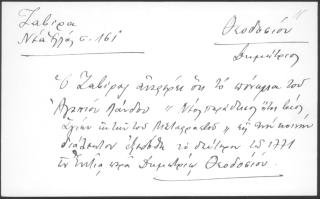 Ζαβίρα
Νέα Ἑλλάς σ. 161
Θεοδοσίου
Δημήτριος
Ὁ Ζαβίρας ἀναφέρει ὅτι τὸ πόνημα τοῦ
Ἀγαπίου Λάνδου " Νέος παράδεισος ἤτοι βίοι
Ἁγίων ἐκ τοῦ Μεταφραστοῦ " εἰς τὴν κοινὴν
διάλεκτον ἐξεδόθη τὸ δεύτερον τῷ 1771
ἐν Ἑνετίᾳ παρὰ Δημητρίῳ Θεοδοσίου.